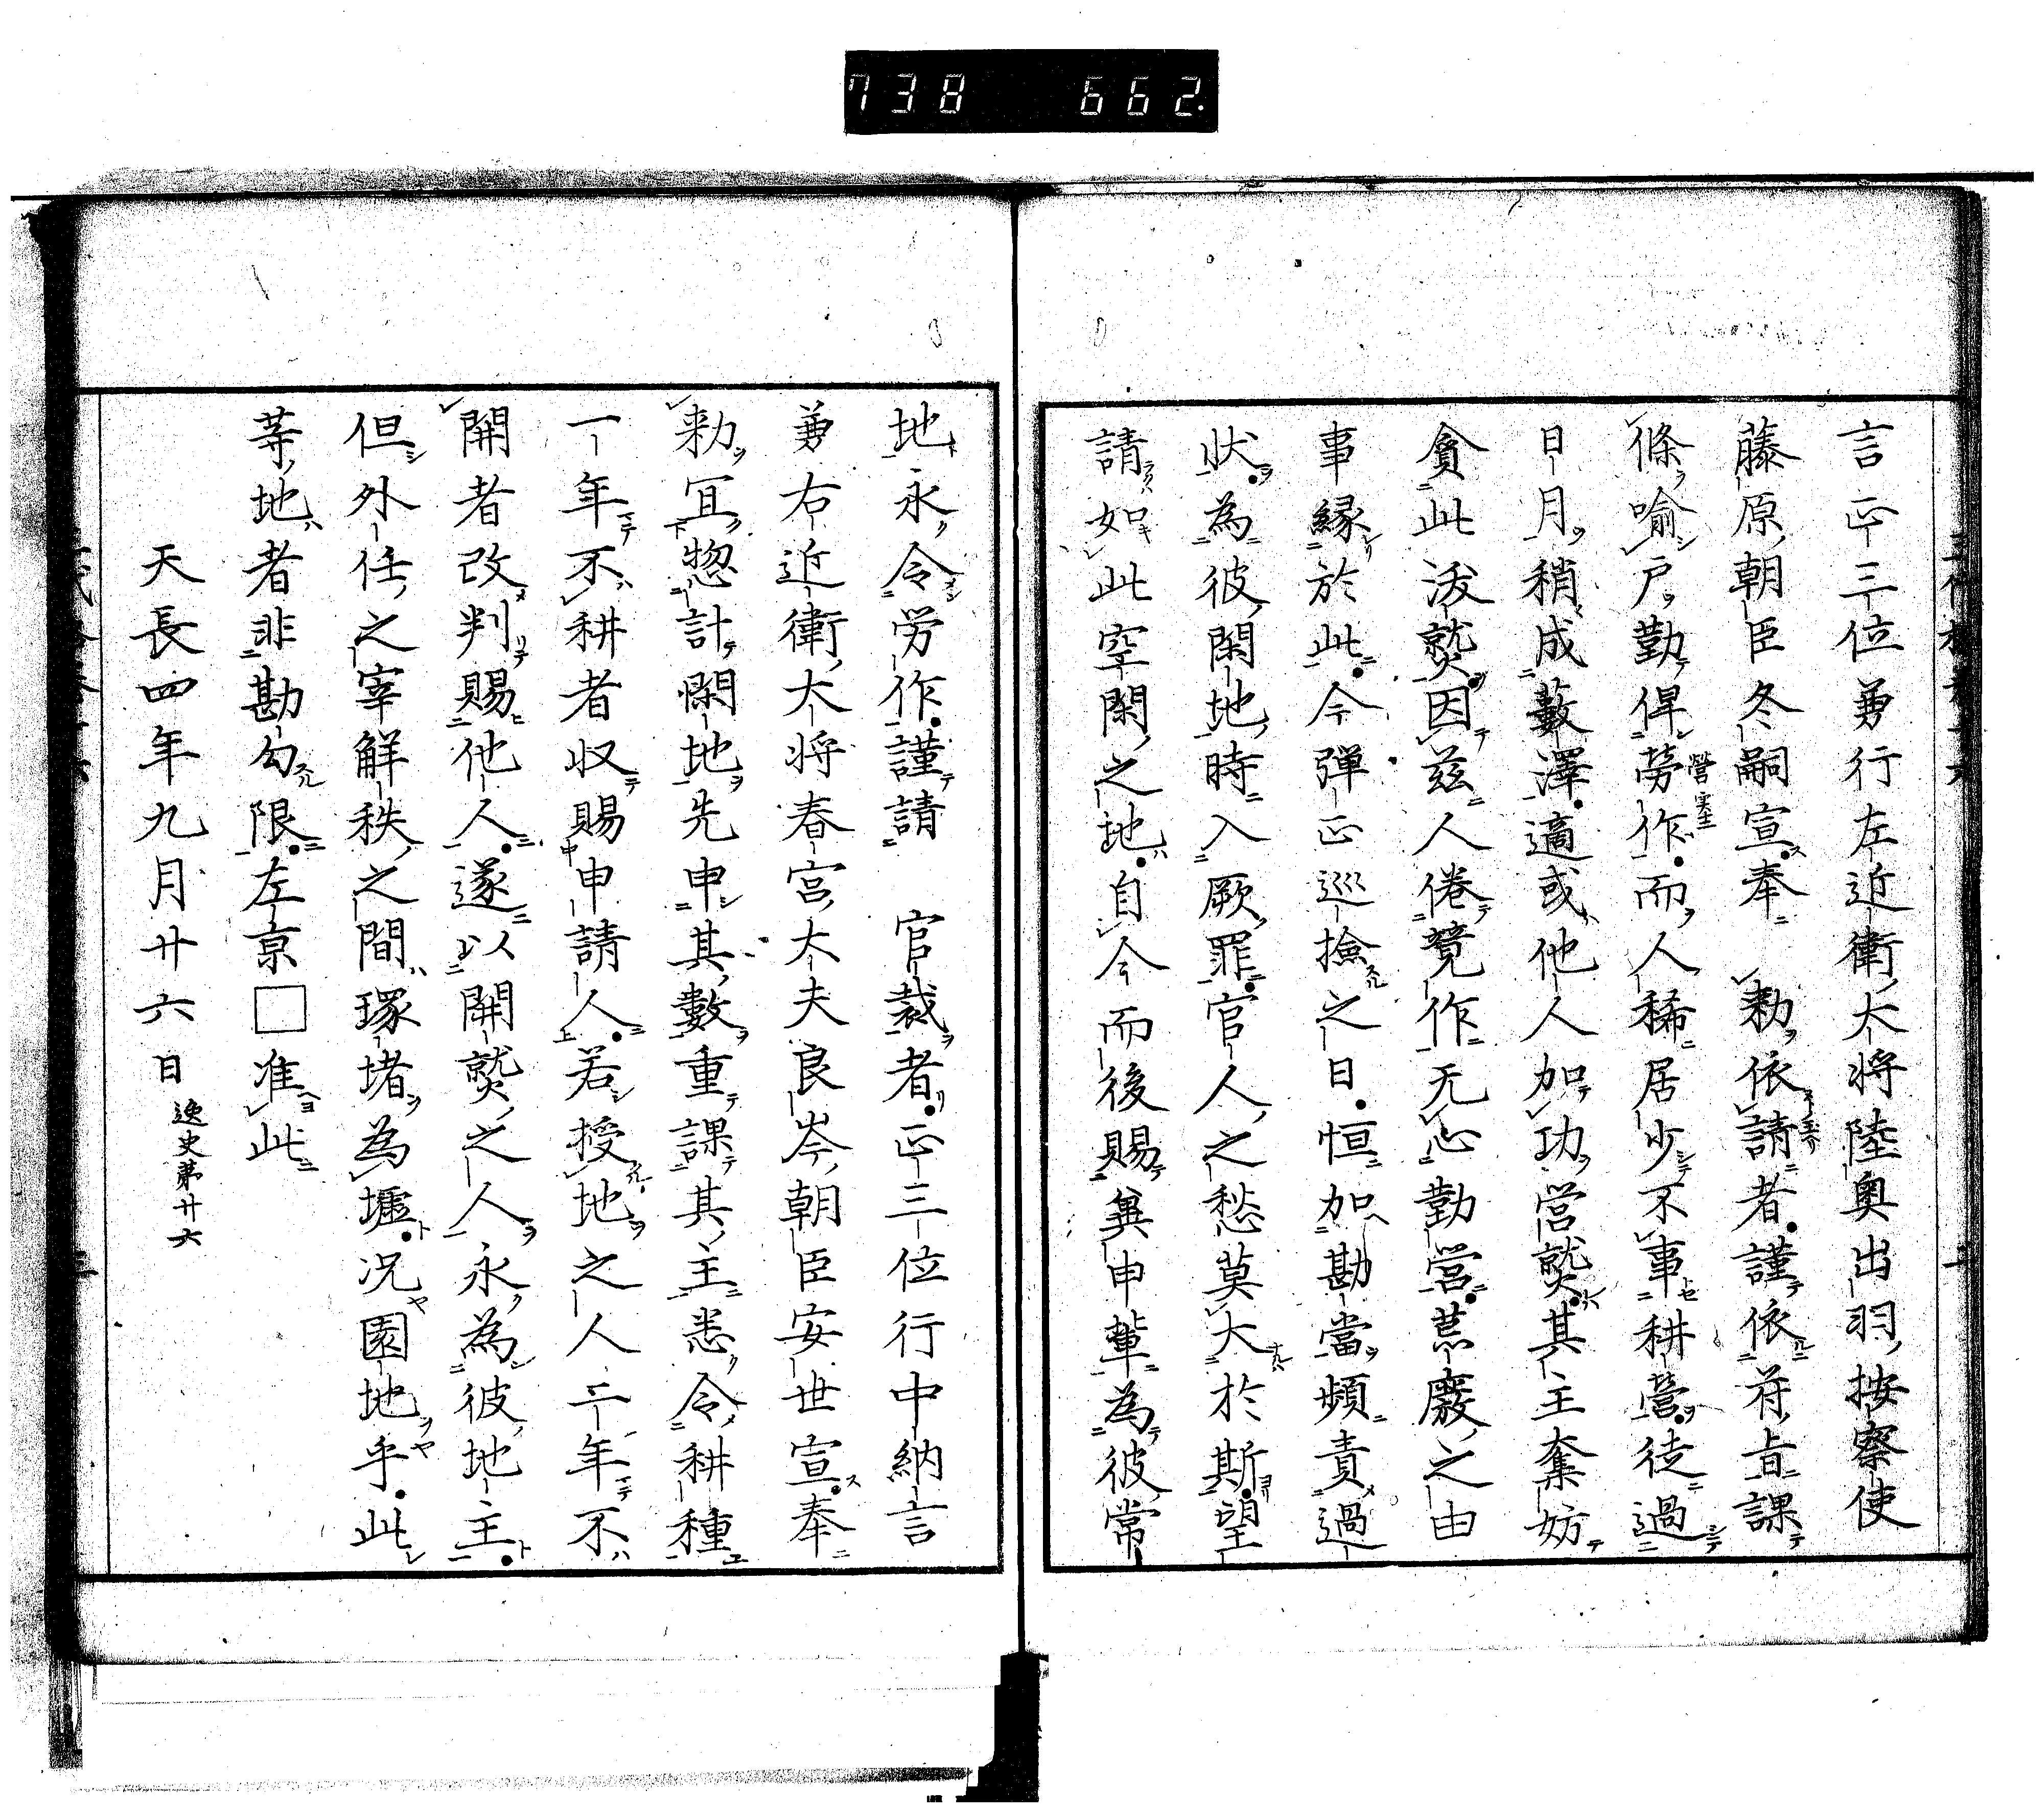 738 662
言正三位兼行左近衛大将陸奥出羽按察使
藤原朝臣冬嗣宣奉 勅依請者謹依苻旨課
條喩戸勤俾勞作而人稀居少不事耕營徒過
日月稍成藪澤適或他人加功営熟其主奪妨
貪此浅熟因茲人倦竟作无心勤営荒廢之由
事縁於此今弾正巡撿之日恒加勘當頻責過
状為彼閑地時入厥罪官人之愁莫大於斯望
請如此空閑之地自今而後賜冀申輩為彼常
地永令労作謹請 官裁者正三位行中納言
兼右近衛大将春宮大夫良岑朝臣安世宣奉
勅冝惣計閑地先申其數重課其主悉令耕種
一年不耕者収賜申請人若授地之人二年不
開者改判賜他人遂以開熟之人永為彼地主
但外任之宰解秩之間琢堵為墟况園地乎此
䓁地者非勘勾限左京□准此
天長四年九月廿六日 逸史第廿六